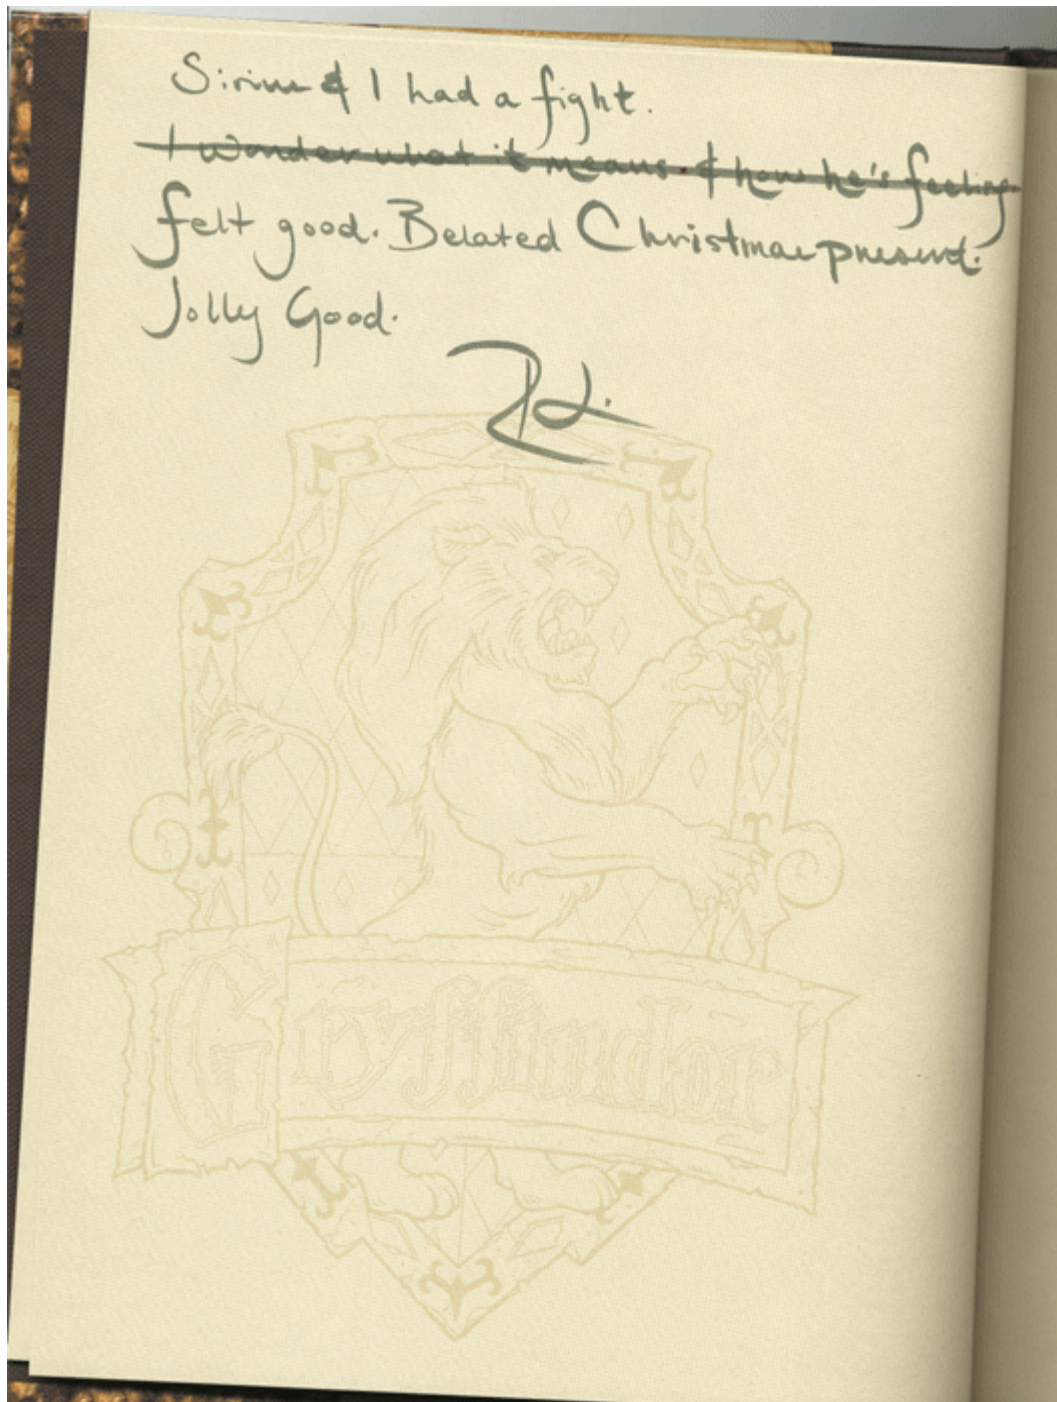 Sirius & I had a fight.
I wonder what it means. & how he's feeling.
felt good. Belated Christmas present.
Jolly Good.
RL.
Gryffindor